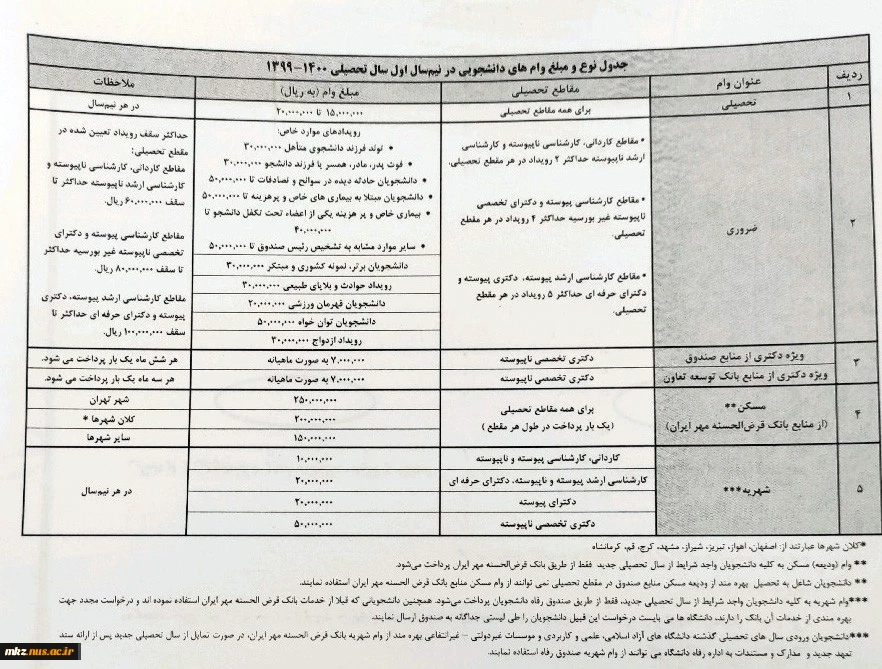 جدول نوع و مبلغ وام های دانشجویی در نیم‌سال اول سال تحصیلی ۱۴۰۰-۱۳۹۹
ردیف عنوان وام مقاطع تحصیلی مبلغ وام (به ریال) ملاحظات
۱ تحصیلی برای همه مقاطع تحصیلی ۱۵,۰۰۰,۰۰۰ تا ۲۰,۰۰۰,۰۰۰ در هر نیم‌سال
۲ ضروری
• مقاطع کاردانی، کارشناسی ناپیوسته و کارشناسی
ارشد ناپیوسته حداکثر ۲ رویداد در هر مقطع تحصیلی.
• مقاطع کارشناسی پیوسته و دکترای تخصصی
ناپیوسته غیر بورسیه حداکثر ۴ رویداد در هر مقطع
تحصیلی
• مقاطع کارشناسی ارشد پیوسته، دکتری پیوسته و
دکترای حرفه ای حداکثر ۵ رویداد در هر مقطع
تحصیلی.
رویدادهای موارد خاص:
• تولد فرزند دانشجوی متأهل ۳۰,۰۰۰,۰۰۰
• فوت پدر، مادر، همسر یا فرزند دانشجو ۳۰,۰۰۰,۰۰۰
• دانشجویان حادثه دیده در سوانح و تصادفات تا ۵۰,۰۰۰,۰۰۰
• دانشجویان مبتلا به بیماری های خاص و پرهزینه تا ۵۰,۰۰۰,۰۰۰
• بیماری خاص و پر هزینه یکی از اعضاء تحت تکفل دانشجو تا
۴۰,۰۰۰,۰۰۰
• سایر موارد مشابه به تشخیص رئیس صندوق تا ۵۰,۰۰۰,۰۰۰
دانشجویان برتر، نمونه کشوری و مبتکر ۳۰,۰۰۰,۰۰۰
رویداد حوادث و بلایای طبیعی ۳۰,۰۰۰,۰۰۰
دانشجویان قهرمان ورزشی ۲۰,۰۰۰,۰۰۰
دانشجویان توان خواه ۵۰,۰۰۰,۰۰۰
رویداد ازدواج ۳۰,۰۰۰,۰۰۰
حداکثر سقف رویداد تعیین شده در
مقطع تحصیلی:
مقاطع کاردانی، کارشناسی ناپیوسته و
کارشناسی ارشد ناپیوسته حداکثر تا
سقف ۶۰,۰۰۰,۰۰۰ ریال.
مقاطع کارشناسی پیوسته و دکترای
تخصصی ناپیوسته غیر بورسیه حداکثر
تا سقف ۸۰,۰۰۰,۰۰۰ ریال.
مقاطع کارشناسی ارشد پیوسته، دکتری
پیوسته و دکترای حرفه ای حداکثر تا
سقف ۱۰۰,۰۰۰,۰۰۰ ریال.
۳ ویژه دکتری از منابع صندوق دکتری تخصصی ناپیوسته ۷,۰۰۰,۰۰۰ به صورت ماهیانه هر شش ماه یک بار پرداخت می شود.
ویژه دکتری از منابع بانک توسعه تعاون دکتری تخصصی ناپیوسته ۷,۰۰۰,۰۰۰ به صورت ماهیانه هر سه ماه یک بار پرداخت می شود.
۴ مسکن**
(از منابع بانک قرض‌الحسنه مهر ایران)
برای همه مقاطع تحصیلی
(یک بار پرداخت در طول هر مقطع )
۲۵۰,۰۰۰,۰۰۰ شهر تهران
۲۰۰,۰۰۰,۰۰۰ کلان شهرها *
۱۵۰,۰۰۰,۰۰۰ سایر شهرها
۵ شهریه*** در هر نیم‌سال
کاردانی، کارشناسی پیوسته و ناپیوسته ۱۰,۰۰۰,۰۰۰
کارشناسی ارشد پیوسته و ناپیوسته، دکترای حرفه ای ۲۰,۰۰۰,۰۰۰
دکترای پیوسته ۲۰,۰۰۰,۰۰۰
دکتری تخصصی ناپیوسته ۵۰,۰۰۰,۰۰۰
*کلان شهرها عبارتند از: اصفهان، اهواز، تبریز، شیراز، مشهد، کرج، قم، کرمانشاه
** وام (ودیعه) مسکن به کلیه دانشجویان واجد شرایط از سال تحصیلی جدید فقط از طریق بانک قرض‌الحسنه مهر ایران پرداخت می‌شود.
** دانشجویان شاغل به تحصیل بهره مند از ودیعه مسکن منابع صندوق در مقطع تحصیلی نمی توانند از وام مسکن منابع بانک قرض الحسنه مهر ایران استفاده نمایند.
***وام شهریه به کلیه دانشجویان واجد شرایط از سال تحصیلی جدید، فقط از طریق صندوق رفاه دانشجویان پرداخت می‌شود. همچنین دانشجویانی که قبلا از خدمات بانک قرض الحسنه مهر ایران استفاده نموده اند و درخواست مجدد جهت
بهره مندی از خدمات آن بانک را دارند، دانشگاه ها می بایست درخواست این قبیل دانشجویان را طی لیستی جداگانه به صندوق ارسال نمایند.
***دانشجویان ورودی سال های تحصیلی گذشته دانشگاه های آزاد اسلامی، علمی و کاربردی و موسسات غیردولتی - غیرانتفاعی بهره مند از وام شهریه بانک قرض الحسنه مهر ایران، در صورت تمایل از سال تحصیلی جدید پس از ارائه سند
تعهد جدید و مدارک و مستندات به اداره رفاه دانشگاه می توانند از وام شهریه صندوق رفاه استفاده نمایند.
mkz.nus.ac.ir